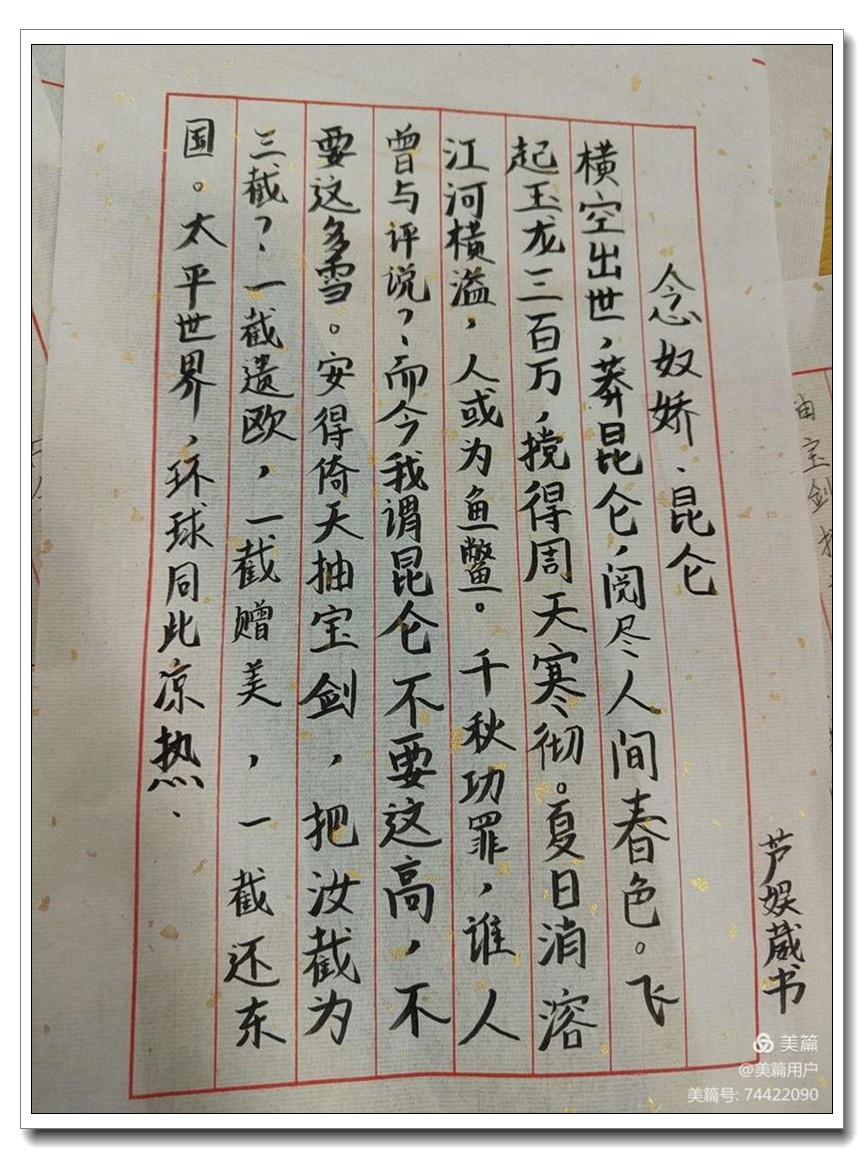 念奴娇、昆仑
横空出世，莽昆仑，阅尽人间春色。飞
起玉龙三百万，搅得周天寒彻。夏日消溶
江河横溢，人或为鱼鳖。千秋功罪，谁人
曾与评说？而今我谓昆仑不要这高，不
要这多雪。安得倚天抽宝剑，把汝截为
三截？一截遗欧，一截赠美，一截还东
国。太平世界，环球同此凉热、
芦娱葳书
由宝剑
美篇
@美篇用户
美篇号: 74422090